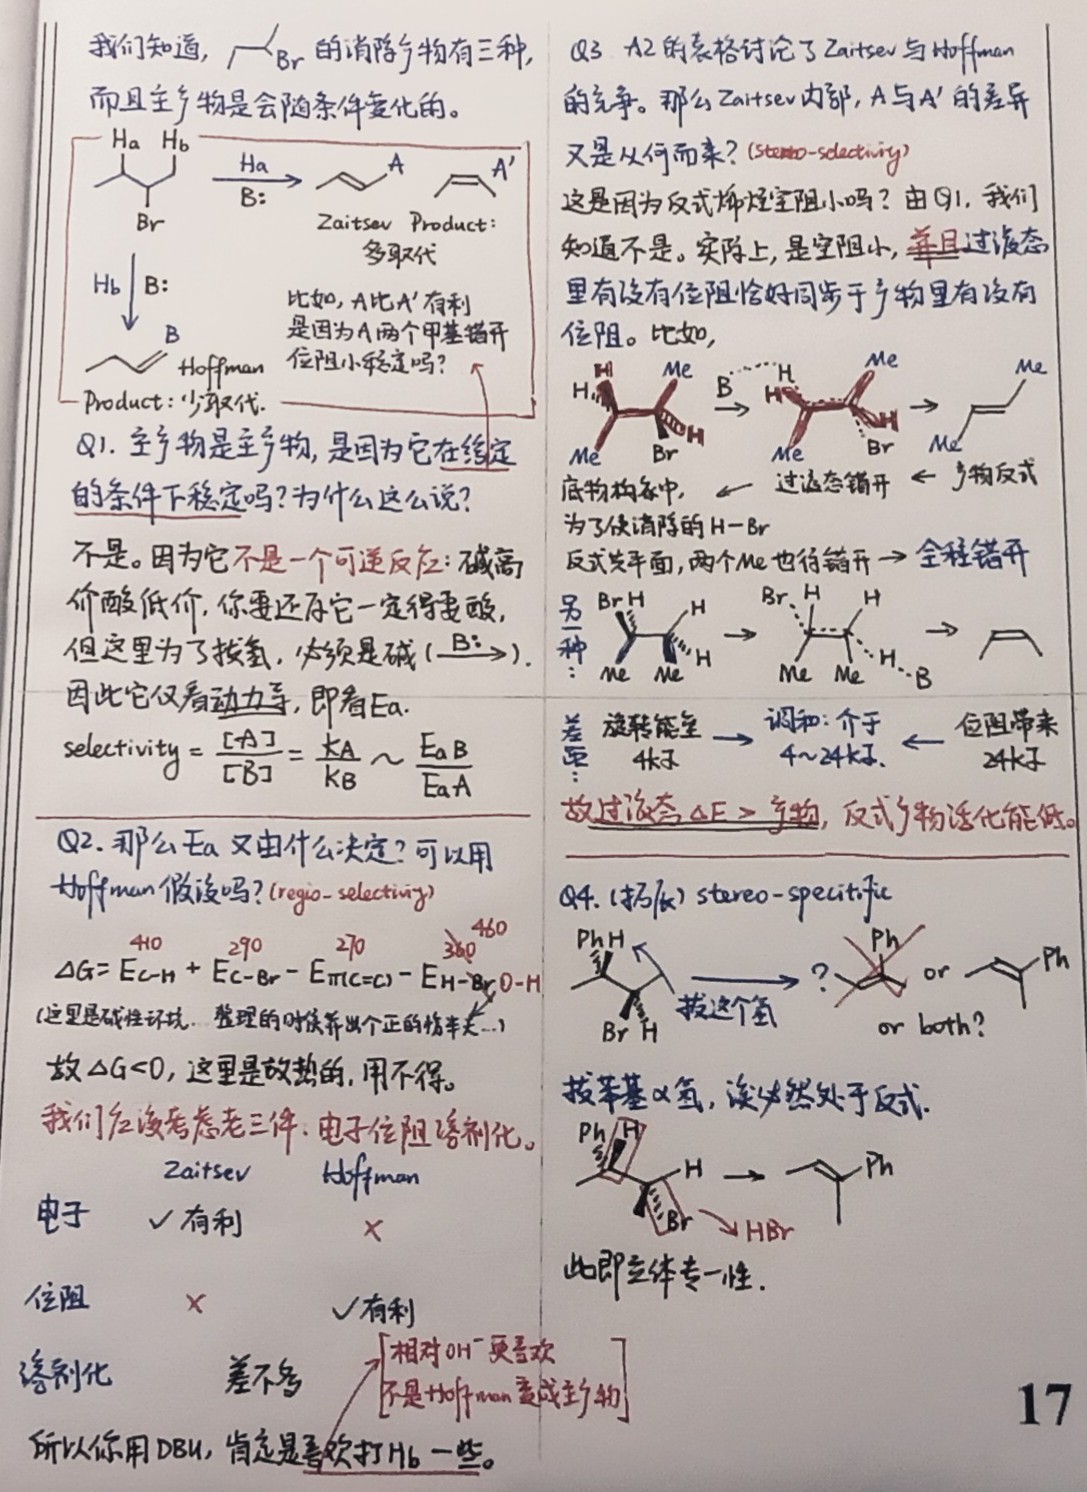 我们知道, Br 的消除产物有三种,
而且主产物是会随条件变化的。
Ha Hb
Ha
B:
A
A'
Br
Zaitsev Product:
多取代
Hb B:
比如, A比A'有利
是因为A两个甲基错开
位阻小稳定吗?
B
Hoffman
Product: 少取代.
Q1. 主产物是主产物, 是因为它在给定
的条件下稳定吗? 为什么这么说?
不是。因为它不是一个可逆反应: 碱高
价酸低价, 你要还原它一定得要酸,
但这里为了拔氢, 必须是碱 (B:).
因此它仅看动力学, 即看Ea.
selectivity = [A]/[B] = kA/kB ~ EaB/EaA
Q2. 那么Ea又由什么决定? 可以用
Hoffman假设吗? (regio-selectivity)
410 290 270 360 460
ΔG = EC-H + EC-Br - Eπ(C=C) - EH-Br O-H
(这里是碱性环境. 整理的时候弄出个正的
故ΔG<0, 这里是放热的, 用不得。
我们应该考虑老三件: 电子位阻溶剂化。
Zaitsev Hoffman
电子 ✓有利 ×
位阻 × ✓有利
溶剂化 差不多
[相对OH⁻更喜欢
不是Hoffman变成主产物]
所以你用DBU, 肯定是喜欢打Hb一些。
Q3. A2的表格讨论了Zaitsev与Hoffman
的竞争。那么Zaitsev内部, A与A'的差异
又是从何而来? (stereo-selectivity)
这是因为反式烯烃空阻小吗? 由Q1, 我们
知道不是。实际上, 是空阻小, 并且过渡态
里有没有位阻恰好同步于产物里有没有
位阻。比如,
H H Me Me Br H
B H H Me Me Br H
Me Me
底物构象中, ← 过渡态错开 ← 产物反式
为了使消除的H-Br
反式共平面, 两个Me也得错开 → 全程错开
另一种:
Br H H H Me Me
Br H H Me Me H B
差距:
旋转能垒 → 调和: 介于 ← 位阻带来
4kJ 4~24kJ. 24kJ
故过渡态ΔE > 产物, 反式产物活化能低。
Q4. (拓展) stereo-specitific
Ph H
Br H
拔这个氢
? Ph or Ph
or both?
拔苯基α氢, 溴必然处于反式.
Ph H H
Br
HBr
Ph
此即立体专一性.
17